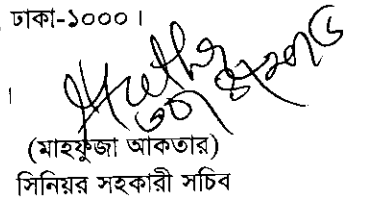 ঢাকা-১০০০।
।
(মাহফুজা আকতার)
সিনিয়র সহকারী সচিব